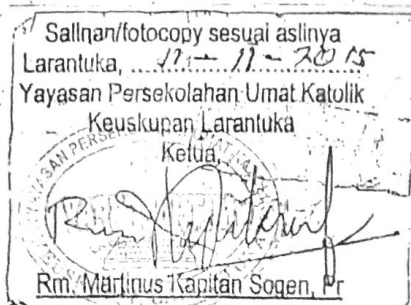 Salinan/fotocopy sesuai aslinya
Larantuka, 17 - 11 - 2015
Yayasan Persekolahan Umat Katolik
Keuskupan Larantuka
Ketua,
Rm. Martinus Kapitan Sogen, Pr